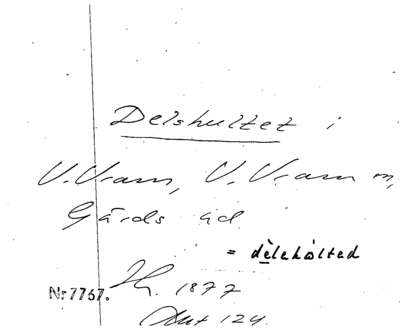 Delshultet i
V. Vram, V. Vram sn,
Gärds hd
= dèlehòlted
Nr 7767.
1877
Ant 124.